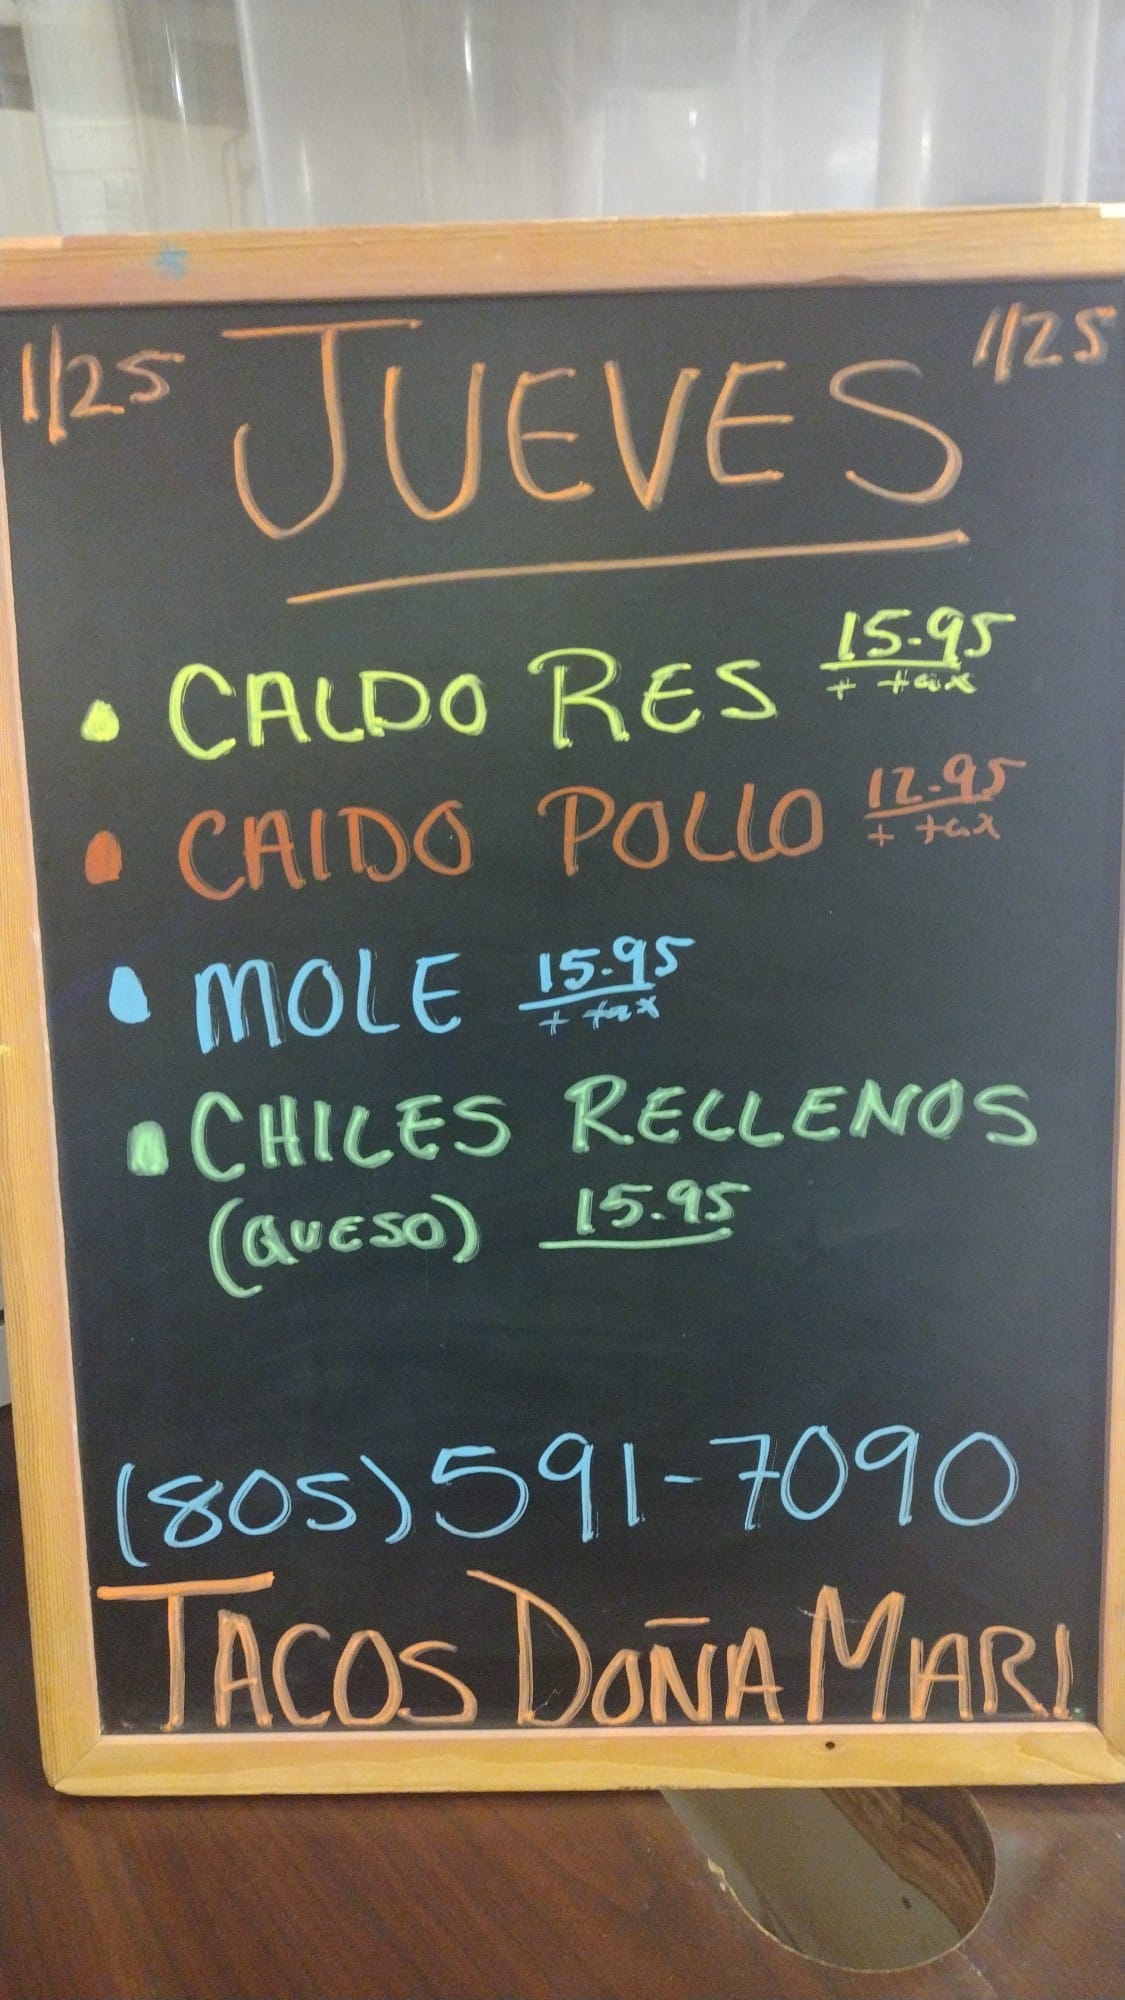 1/25 JUEVES 1/25
• CALDO RES 15.95
+ tax
• CALDO POLLO 12.95
+ tax
• MOLE 15.95
+ tax
• CHILES RELLENOS
(QUESO) 15.95
(805) 591-7090
TACOS DOÑA MARI